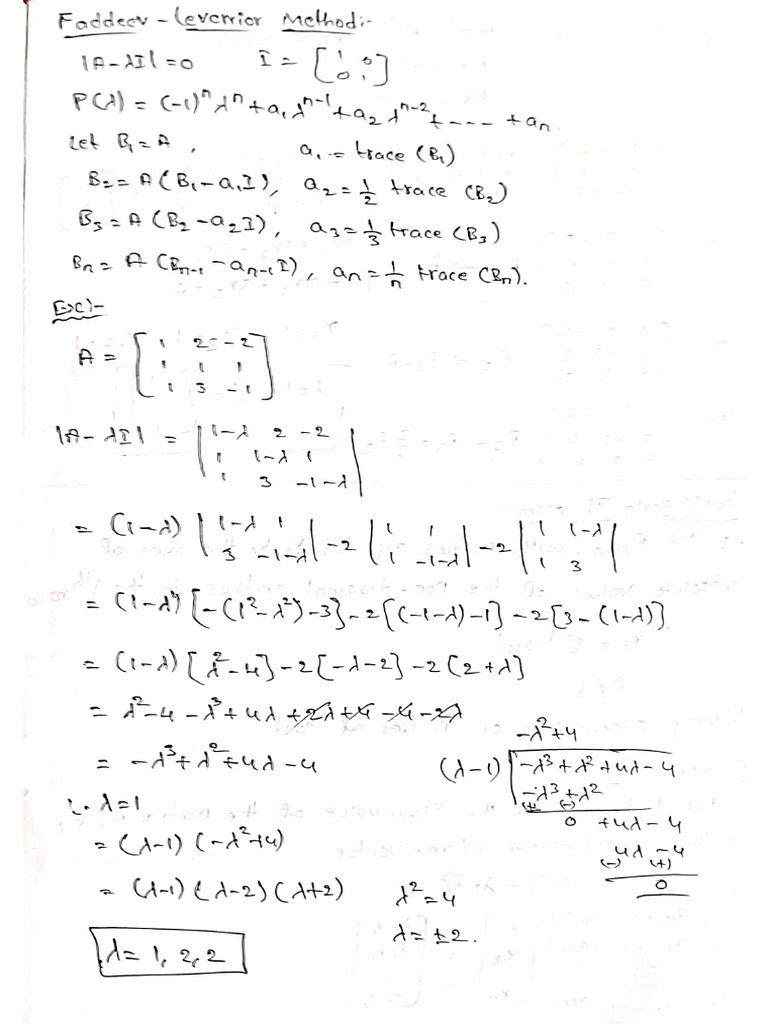 Faddeev - Leverrior Method:-
|A-λI| = 0    I = [1 0; 0 1]
P(λ) = (-1)ⁿ λⁿ + a₁ λⁿ⁻¹ + a₂ λⁿ⁻² + ---- + aₙ.
Let B₁ = A ,    a₁ = trace (B₁)
B₂ = A (B₁ - a₁I), a₂ = 1/2 trace (B₂)
B₃ = A (B₂ - a₂I), a₃ = 1/3 trace (B₃)
Bₙ = A (Bₙ₋₁ - aₙ₋₁I), aₙ = 1/n trace (Bₙ).
Ex:-
A = [1 2 -2; 1 1 1; 1 3 -1]
|A - λI| = |1-λ 2 -2; 1 1-λ 1; 1 3 -1-λ|
= (1-λ) |1-λ 1; 3 -1-λ| -2 |1 1; 1 -1-λ| -2 |1 1-λ; 1 3|
= (1-λ) [-(1²-λ²)-3] -2[(-1-λ)-1] -2[3-(1-λ)]
= (1-λ) [λ²-4] -2[-λ-2] -2[2+λ]
= λ²-4-λ³+4λ+2λ+4-4-2λ
= -λ³+λ²+4λ-4
∴ λ=1
= (λ-1) (-λ²+4)
= (λ-1) (λ-2) (λ+2)
λ = 1, 2, 2
-λ²+4
(λ-1) -λ³+λ²+4λ-4
-λ³+λ²
(+) (-)
0 +4λ-4
4λ-4
(-) (+)
0
λ²=4
λ=±2.